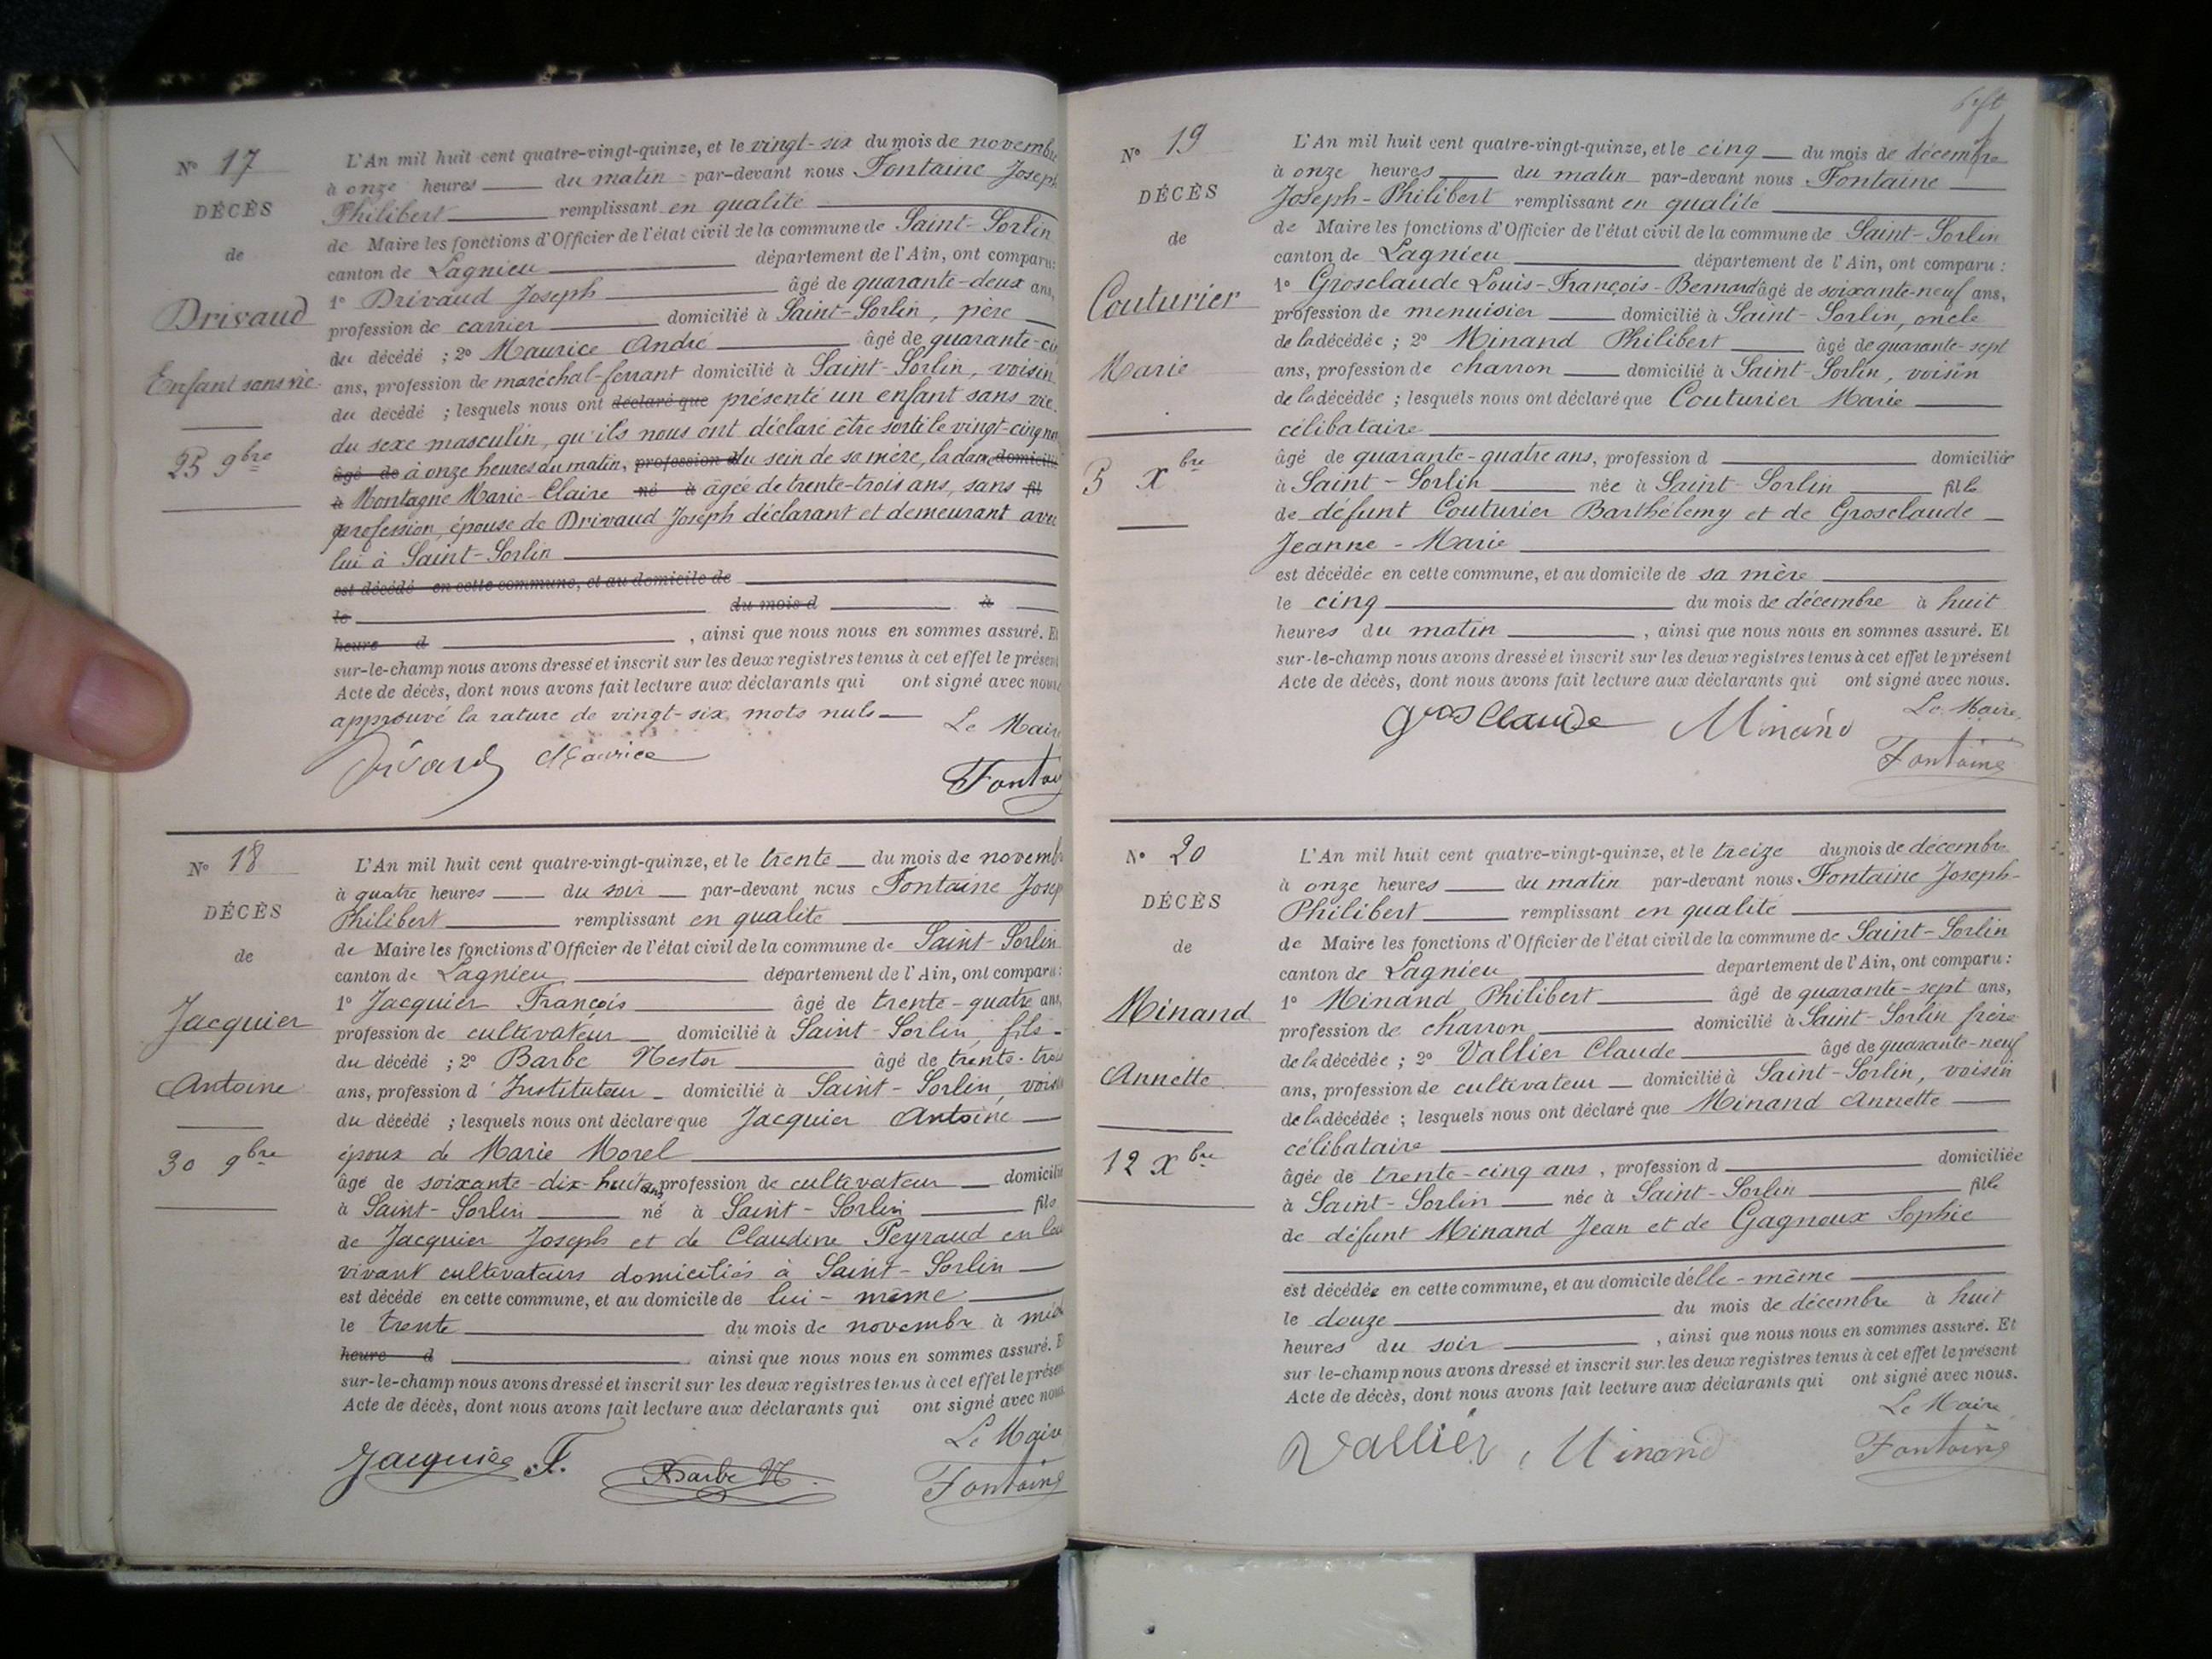 N° 17
DÉCÈS
de
Drivaud
Enfant sans vie
25 9bre
L'An mil huit cent quatre-vingt-quinze, et le vingt-six du mois de novembre
à onze heures du matin par-devant nous Fontaine Joseph
Philibert remplissant en qualité
de Maire les fonctions d'Officier de l'état civil de la commune de Saint-Sorlin
canton de Lagnieu département de l'Ain, ont comparu:
1° Drivaud Joseph âgé de quarante-deux ans,
profession de carrier domicilié à Saint-Sorlin, père
du décédé ; 2° Maurice André âgé de quarante-cin
ans, profession de maréchal-ferrant domicilié à Saint-Sorlin, voisin
du décédé ; lesquels nous ont déclaré que présenté un enfant sans vie
du sexe masculin, qu'ils nous ont déclaré être sorti le vingt-cinq no
âgé de à onze heures du matin, profession d du sein de sa mère, la dame domicilié
à Montagne Marie-Claire né à âgée de trente-trois ans, sans fil
profession, épouse de Drivaud Joseph déclarant et demeurant avec
lui à Saint-Sorlin
est décédé en cette commune, et au domicile de
le du mois d à
heure d , ainsi que nous nous en sommes assuré. Et
sur-le-champ nous avons dressé et inscrit sur les deux registres tenus à cet effet le présent
Acte de décès, dont nous avons fait lecture aux déclarants qui ont signé avec nous
approuvé la rature de vingt-six mots nuls Le Mair
Drivard Maurice
Fontai
N° 18
DÉCÈS
de
Jacquier
Antoine
30 9bre
L'An mil huit cent quatre-vingt-quinze, et le trente du mois de novemb
à quatre heures du soir par-devant nous Fontaine Josep
Philibert remplissant en qualité
de Maire les fonctions d'Officier de l'état civil de la commune de Saint-Sorlin
canton de Lagnieu département de l'Ain, ont comparu:
1° Jacquier François âgé de trente-quatre ans,
profession de cultivateur domicilié à Saint-Sorlin, fils
du décédé ; 2° Barbe Nestor âgé de trente-trois
ans, profession d'Instituteur domicilié à Saint-Sorlin, voisin
du décédé ; lesquels nous ont déclaré que Jacquier Antoine
époux de Marie Morel
âgé de soixante-dix-huit ans, profession de cultivateur domicilié
à Saint-Sorlin né à Saint-Sorlin fils
de Jacquier Joseph et de Claudine Peyraud en leu
vivant cultivateurs domiciliés à Saint-Sorlin
est décédé en cette commune, et au domicile de lui-même
le trente du mois de novembre à midi
heure d ainsi que nous nous en sommes assuré. E
sur-le-champ nous avons dressé et inscrit sur les deux registres tenus à cet effet le présen
Acte de décès, dont nous avons fait lecture aux déclarants qui ont signé avec nous
Le Maire
Jacquier F. Barbe N. Fontaine
N° 19
DÉCÈS
de
Couturier
Marie
5 Xbre
L'An mil huit cent quatre-vingt-quinze, et le cinq du mois de décembre
à onze heures du matin par-devant nous Fontaine
Joseph-Philibert remplissant en qualité
de Maire les fonctions d'Officier de l'état civil de la commune de Saint-Sorlin
canton de Lagnieu département de l'Ain, ont comparu :
1° Grosclaude Louis-François-Bernard âgé de soixante-neuf ans,
profession de menuisier domicilié à Saint-Sorlin, oncle
de la décédée ; 2° Minand Philibert âgé de quarante-sept
ans, profession de charron domicilié à Saint-Sorlin, voisin
de la décédée ; lesquels nous ont déclaré que Couturier Marie
célibataire
âgé de quarante-quatre ans, profession d domiciliée
à Saint-Sorlin née à Saint-Sorlin fille
de défunt Couturier Barthélemy et de Grosclaude
Jeanne-Marie
est décédée en cette commune, et au domicile de sa mère
le cinq du mois de décembre à huit
heures du matin , ainsi que nous nous en sommes assuré. Et
sur-le-champ nous avons dressé et inscrit sur les deux registres tenus à cet effet le présent
Acte de décès, dont nous avons fait lecture aux déclarants qui ont signé avec nous.
Le Maire,
Grosclaude Minand
Fontaine
N° 20
DÉCÈS
de
Minand
Annette
12 Xbre
L'An mil huit cent quatre-vingt-quinze, et le treize du mois de décembre
à onze heures du matin par-devant nous Fontaine Joseph-
Philibert remplissant en qualité
de Maire les fonctions d'Officier de l'état civil de la commune de Saint-Sorlin
canton de Lagnieu département de l'Ain, ont comparu :
1° Minand Philibert âgé de quarante-sept ans,
profession de charron domicilié à Saint-Sorlin frère
de la décédée ; 2° Vallier Claude âgé de quarante-neuf
ans, profession de cultivateur domicilié à Saint-Sorlin, voisin
de la décédée ; lesquels nous ont déclaré que Minand Annette
célibataire
âgée de trente-cinq ans, profession d domiciliée
à Saint-Sorlin née à Saint-Sorlin fille
de défunt Minand Jean et de Gagneux Sophie
est décédée en cette commune, et au domicile d'elle-même
le douze du mois de décembre à huit
heures du soir , ainsi que nous nous en sommes assuré. Et
sur-le-champ nous avons dressé et inscrit sur les deux registres tenus à cet effet le présent
Acte de décès, dont nous avons fait lecture aux déclarants qui ont signé avec nous.
Le Maire
Vallier Minand Fontaine